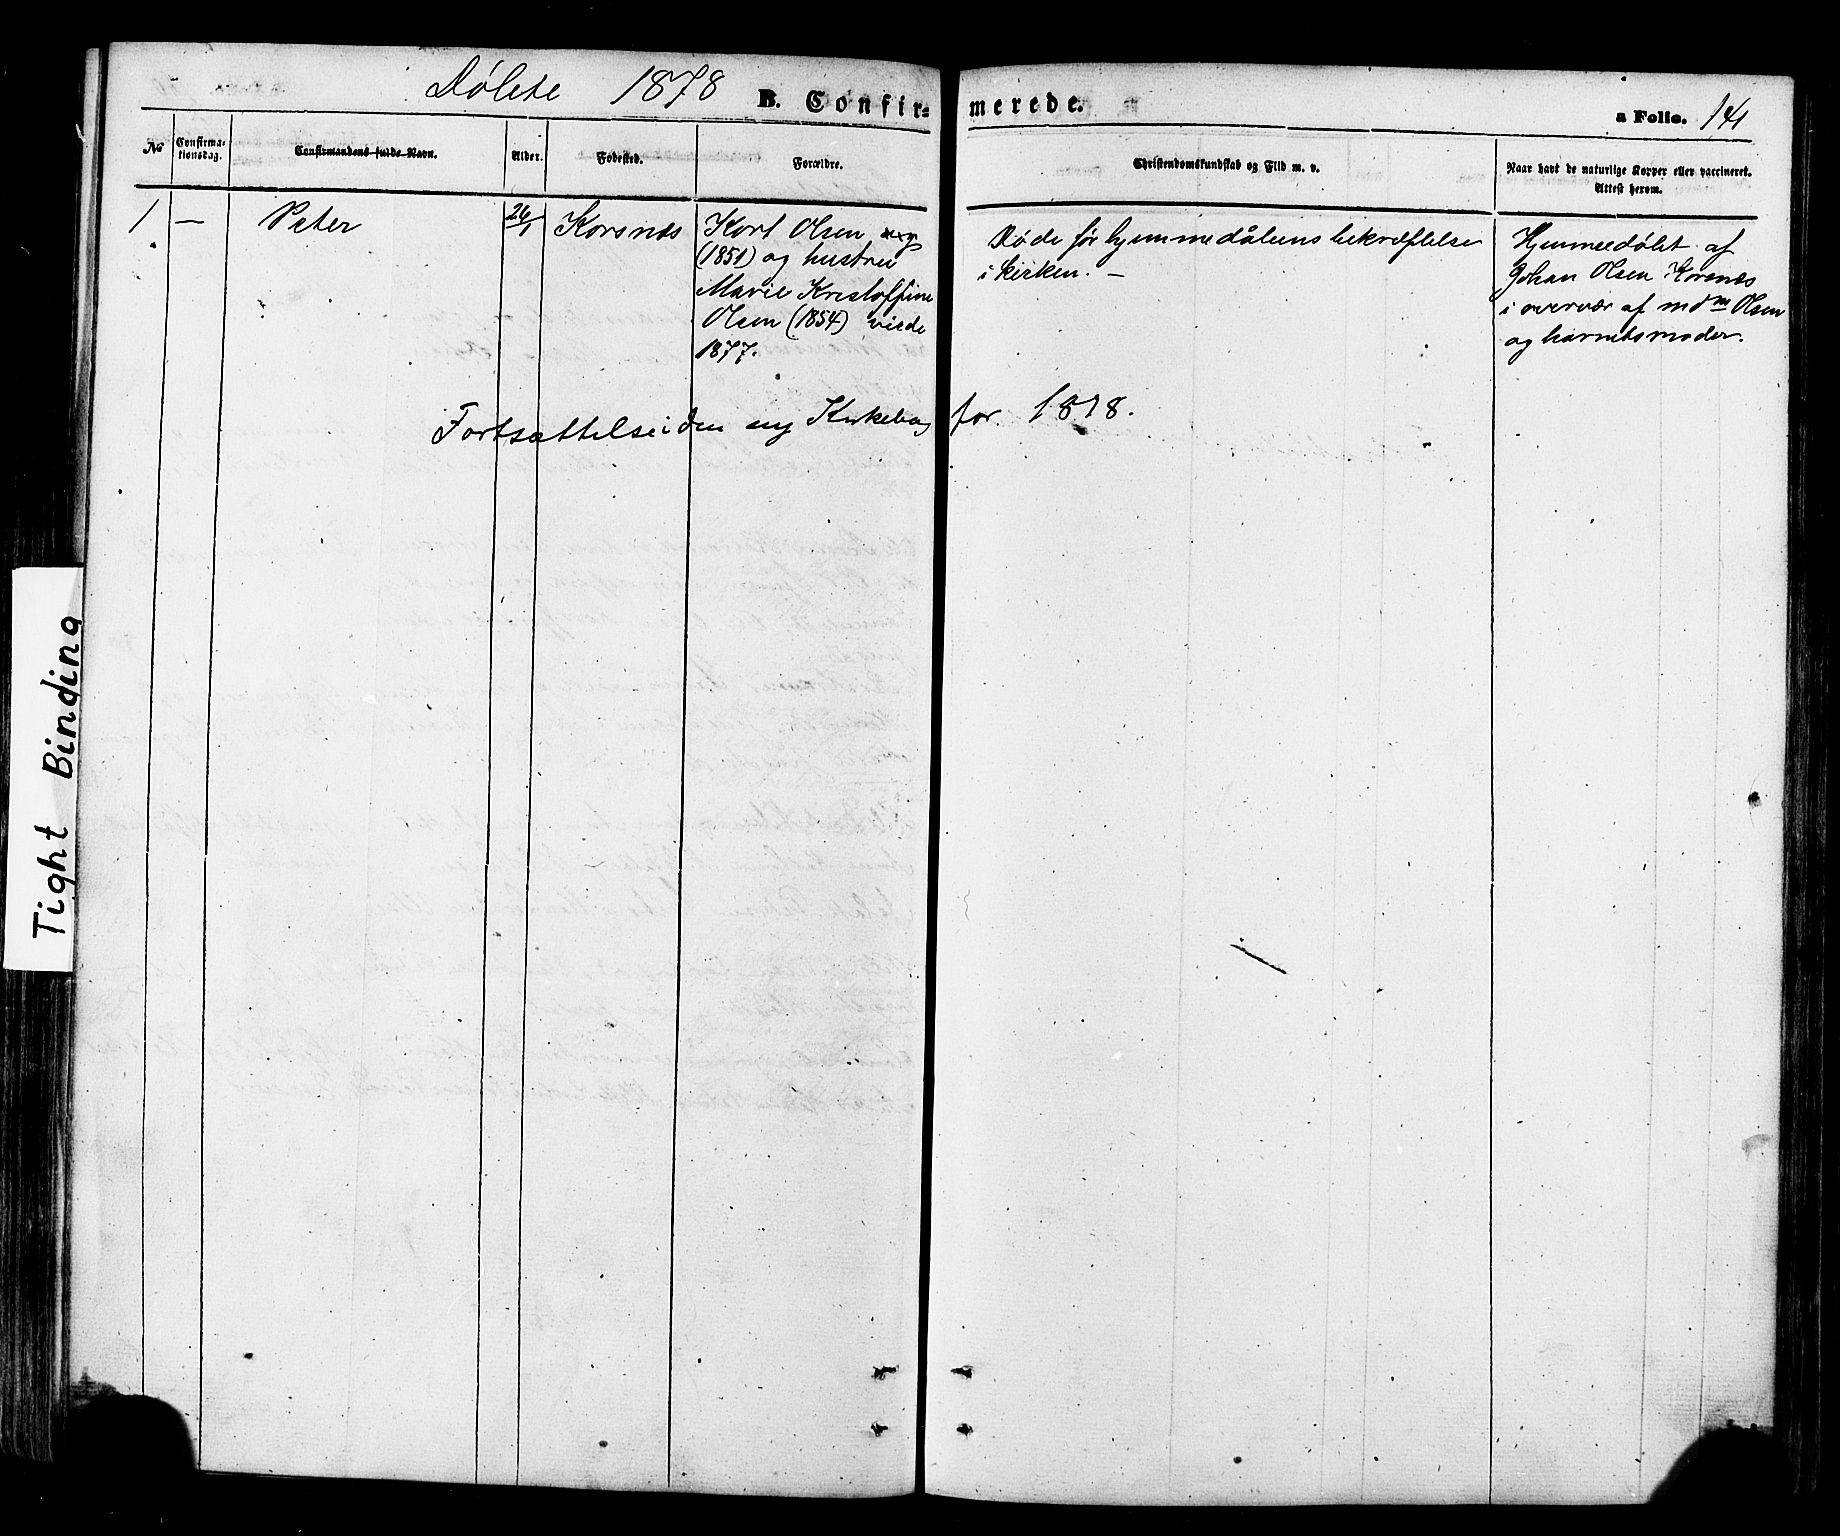 Døbte 1878 B. Confirmerede. a Folio. 141
No
Confirmationsdag.
Confirmandens fulde Navn.
Alder.
Fødested.
Forældre.
Christendomskundskab og Flid m. v.
Naar havt de naturlige Kopper eller vaccineret.
Attest herom.
1 — Peter 26/1 Korsnes
Kort Olsen
(1851) og hustru
Marie Kristoffine
Olsen (1854) viede
1877.
Døde før hjemmedåbens bekræftelse
i kirken. —
Hjemmedøbt af
Johan Olsen Korsnes
i overvær af mdm Olsen
og barnetsmoder.
Fortsættelse i den ny Kirkebog for 1878.
Tight Binding